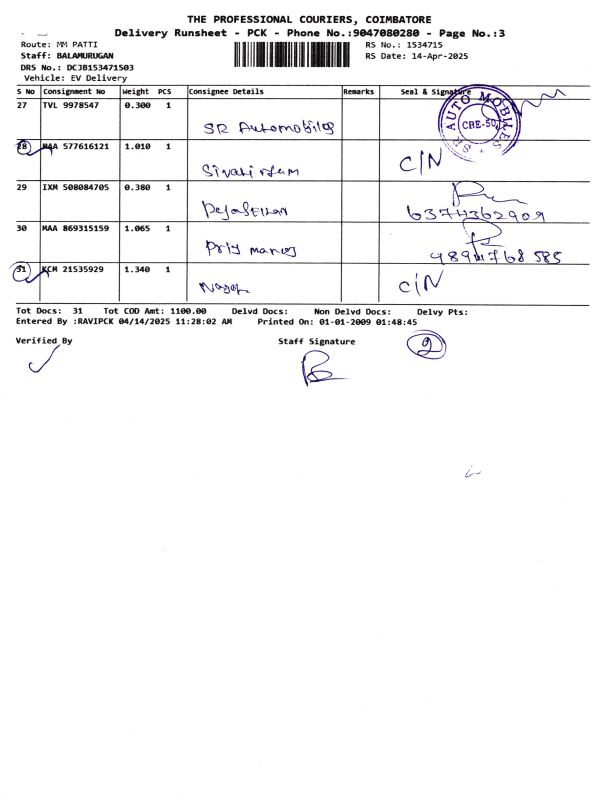 THE PROFESSIONAL COURIERS, COIMBATORE
Delivery Runsheet - PCK - Phone No.:9047080280 - Page No.:3
Route: MM PATTI RS No.: 1534715
Staff: BALAMURUGAN RS Date: 14-Apr-2025
DRS No.: DCJB153471503
Vehicle: EV Delivery
S No Consignment No Weight PCS Consignee Details Remarks Seal & Signature
27 TVL 9978547 0.300 1
SR Automobiles
SR AUTO MOBILES CBE-50
28 MAA 577616121 1.010 1
C/N
29 IXM 508084705 0.380 1
6374362909
30 MAA 869315159 1.065 1
Priy manoj 9894768585
31 KCM 21535929 1.340 1
C/N
Tot Docs: 31 Tot COD Amt: 1100.00 Delvd Docs: Non Delvd Docs: Delvy Pts:
Entered By :RAVIPCK 04/14/2025 11:28:02 AM Printed On: 01-01-2009 01:48:45
Verified By Staff Signature 2